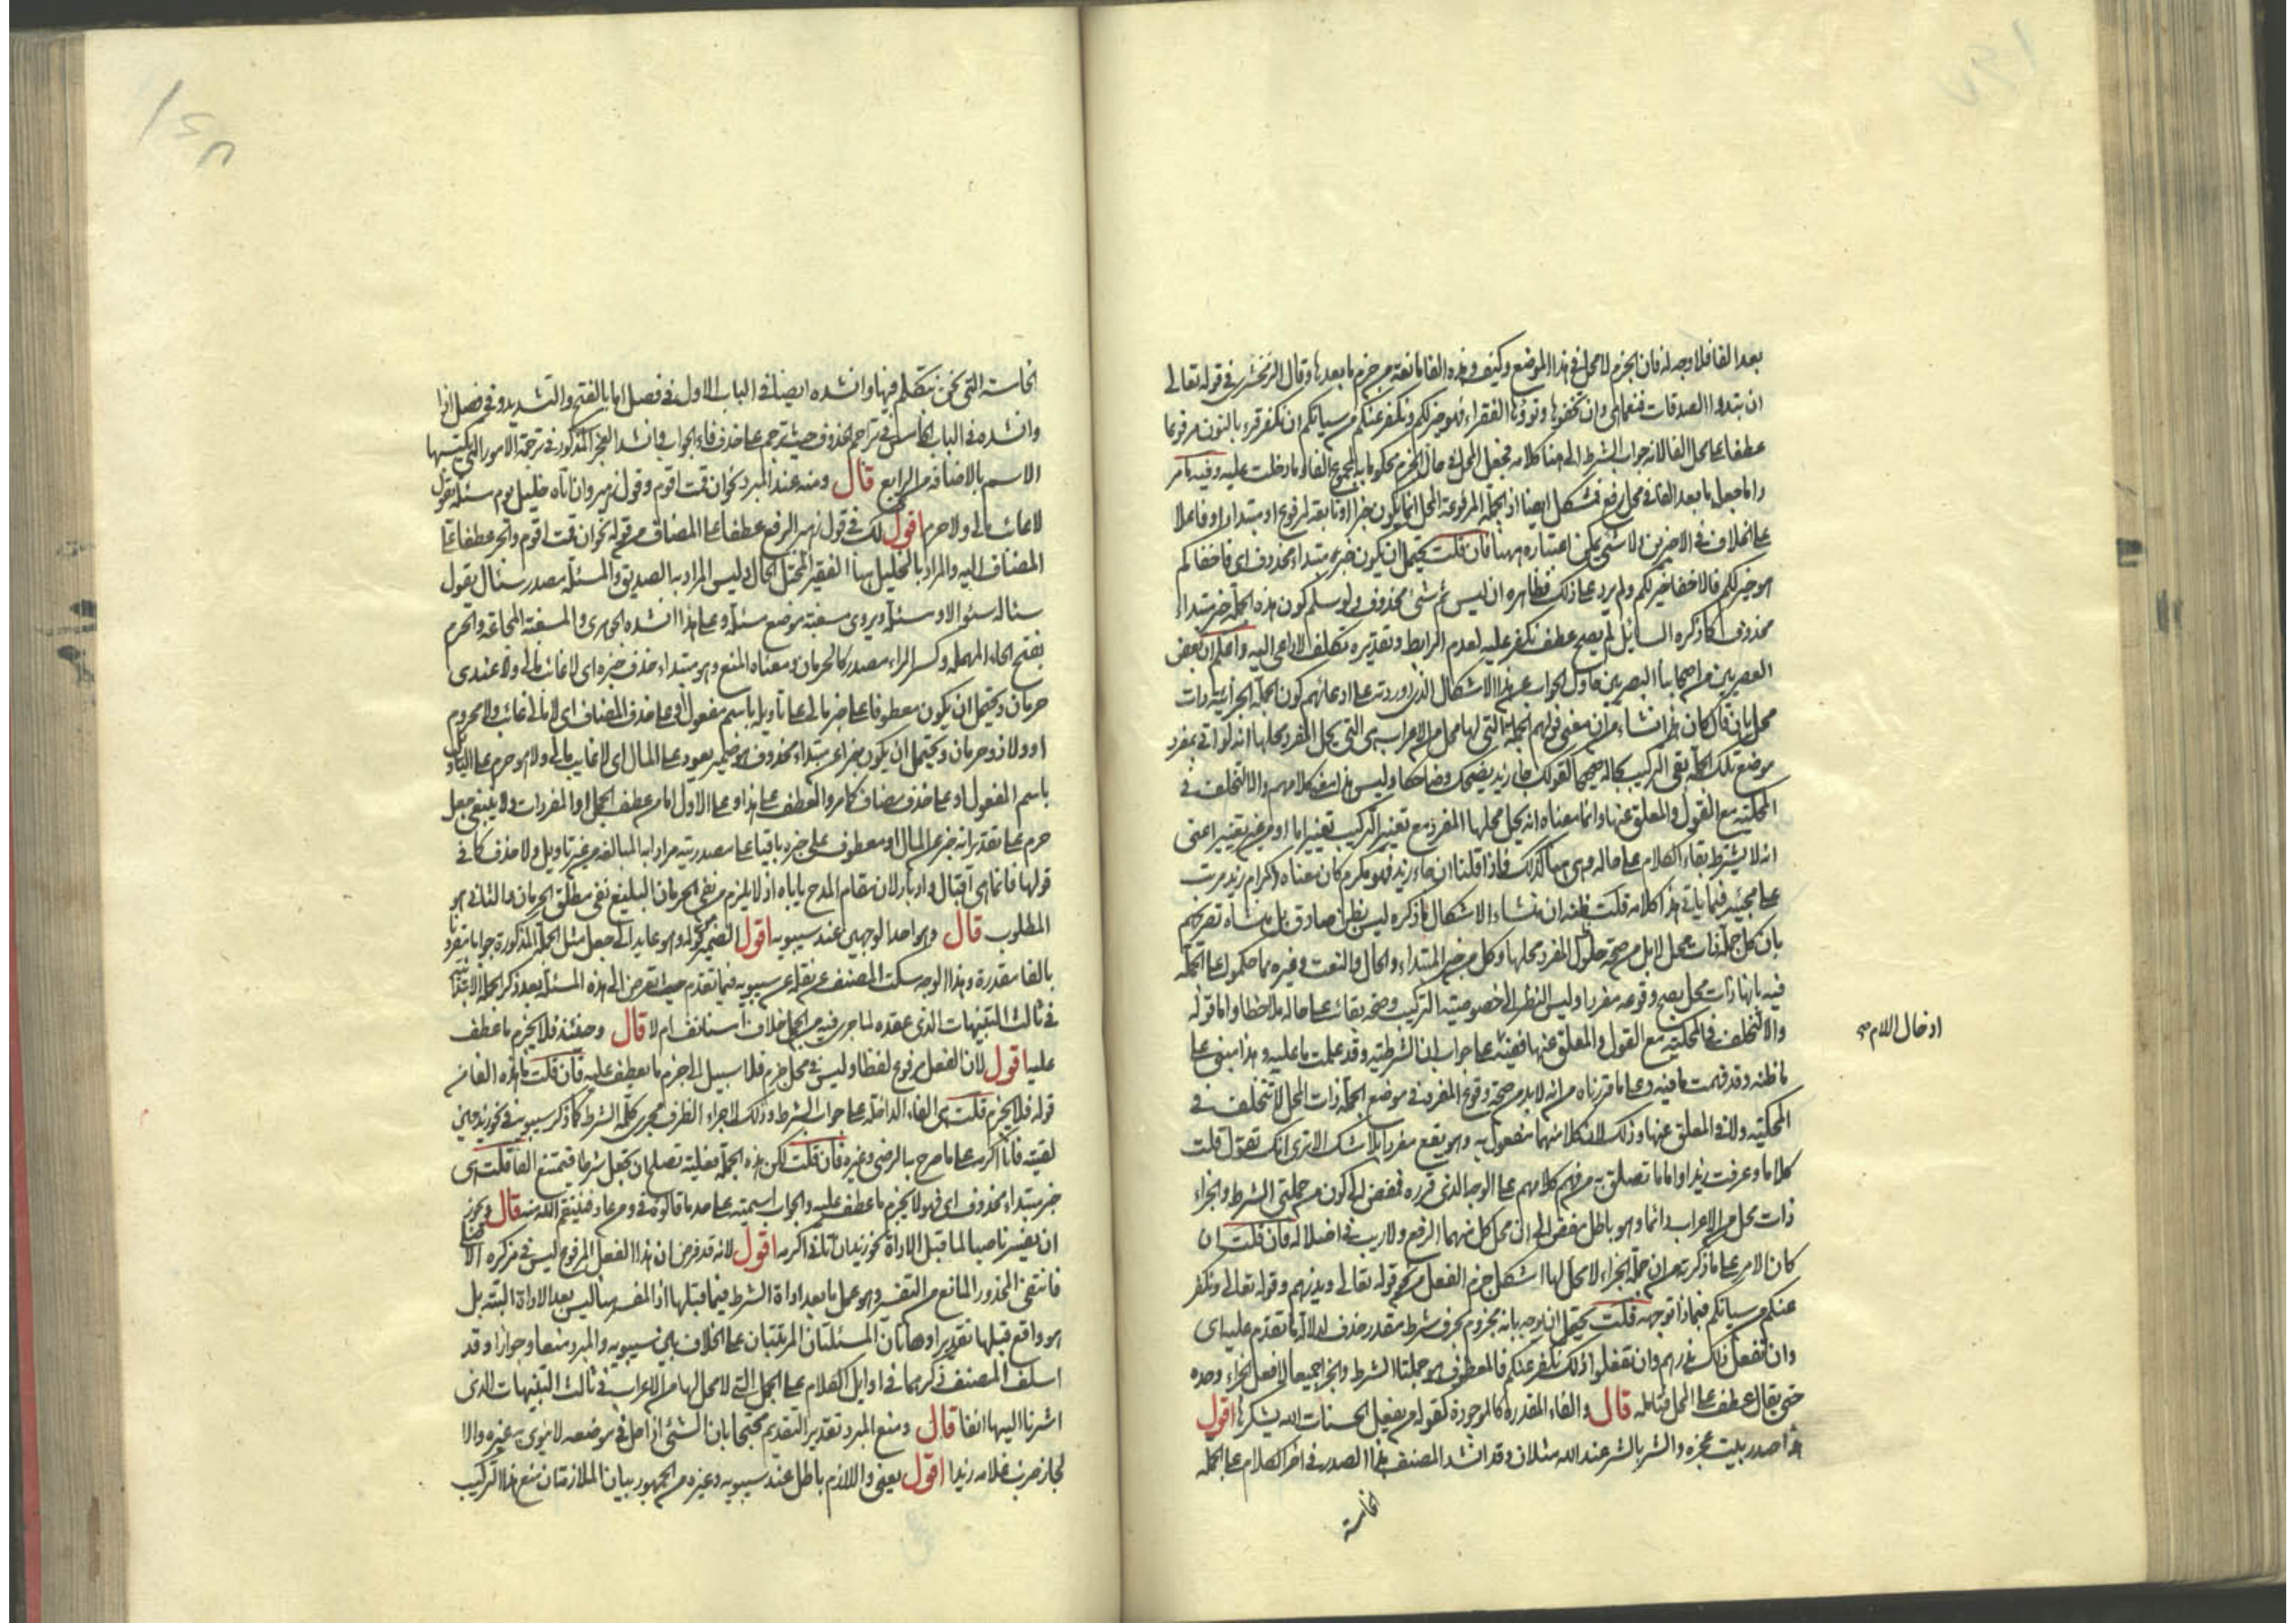 بعد الفا فلا وجه له فان الجزم لا محل في هذا الموضع وكيف وهذه الفا مانعة من جزم ما بعدها وقال الزمخشري في قوله تعالى
ان تبدوا الصدقات فنعما هي وان تخفوها وتوتوها الفقراء فهو خير لكم ونكفر عنكم من سياتكم ان نكفر قرء بالنون مرفوعا
عطفا على محل الفا لانه جواب الشرط الى هنا كلامه فجعل المحل في حال الجزم محكوما به لمجموع الفا وما دخلت عليه وفيه ما مر
واما جعل ما بعد الفا في محل رفع فمشكل ايضا اذ الجملة المرفوعة المحل انما يكون خبرا او تابعة لمرفوع او مبتدا او فاعلا
على الخلاف في الاخيرين ولا شي يمكن اعتباره ههنا فان قلت يحتمل ان يكون خبر مبتداء محذوف اي فاخفاكم
هو خير لكم فالاخفا خير لكم ولم يرد على ذلك فظاهره ان ليس ثم شئ محذوف ولو سلم كون هذه الجملة خبر مبتداء
محذوف كما ذكره السايل لم يصح عطف نكفر عليه لعدم الرابط وتقديره تكلف لا داعي اليه واعلم ان بعض
العصريين من اصحابنا البصريين حاول الجواب عن هذا الاشكال الذي اوردته على ادعائهم كون الجملة الجزائية ذات
محل بان قال كان هذا انشاء من ان معنى قولهم الجملة التي لها محل من الاعراب هي التي يحل المفرد محلها انه لو اتى بمفرد
موضع تلك الجملة بقي التركيب بحاله صحيحا كقولك جاء زيد يضحك وضاحكا وليس هذا معنى كلامهم والا لتخلف في
المحكية مع القول والمعلق عنها وانما معناه انه يحل محلها المفرد مع تغيير التركيب تغييرا ما او من غير تغيير اعنى
انه لا يشترط بقاء الكلام على حاله وهي هنا كذلك فاذا قلنا ان جاء زيد فهو مكرم كان معناه اكرام زيد مرتب
على مجيئه فيما ياتي هذا كلامه قلت ظنه ان منشاء الاشكال ما ذكره ليس بظن صادق بل منشاه تصريحهم
بان كل جملة ذات محل لا بد من صحة حلول المفرد محلها وكل من خبر المبتداء والحال والنعت وغيره مما حكموا على الجملة
فيه بانها ذات محل يصح وقوعه مفردا وليس النظر الى خصوصية التركيب وصحة بقائه على حاله ملاحظا واما قوله
والا لتخلف في المحكية مع القول والمعلق عنها فمبني على جواب ان الشرطية وقد علمت ما عليه وهذا مبني على
ما ظنه وقد فهمت ما فيه وعلى ما قررناه من انه لابد من صحة وقوع المفرد في موضع الجملة ذات المحل لا تتخلف في
المحكية ولا في المعلق عنها وذلك لان كلا منهما مفعول به وهو يقع مفردا بلا شك الا ترى انك تقول قلت
كلاما وعرفت زيدا واما ما تصلق به من فهم كلامهم على الوجه الذي قرره فمفض الى كون من جملتي الشرط والجزاء
ذات محل من الاعراب دائما وهو باطل مفض الى ان محل كل منهما الرفع ولا ريب في اضلاله فان قلت ان
كان الامر على ما ذكرته من ان جملة الجزاء لا محل لها اشكل جزم الفعل من نحو قوله تعالى ويذرهم وقوله تعالى ونكفر
عنكم من سياتكم فبماذا توجهه قلت يحتمل ان يوجه بانه مجزوم بحرف شرط مقدر حذف لدلالة ما تقدم عليه اي
وان نفعل ذلك نذرهم وان تفعلوا ذلك نكفر عنكم فالمعطوف هو جملتا الشرط والجزا جميعا لا فعل الجزاء وحده
حتى يقال عطف على المحل فتامله قال والفاء المقدرة كالموجودة كقوله من يفعل الحسنات الله يشكرها اقول
هذا صدر بيت عجزه والشر بالشر عند الله مثلان وقد انشد المصنف هذا الصدر في اخر الكلام على الجملة
الخامسة
ادخال اللام صح
الخامسة التي نحن نتكلم فيها وانشده ايضا في الباب الاول في فصل اما بالفتح والتشديد وفي فصل اذا
وانشده في الباب الخامس في تراجم الحذوف حيث ترجم على حذف فاء الجواب وانشد العجز المذكور في ترجمة الامور التي يكتسبها
الاسم بالاضافة من الرابع قال ومنه عند المبرد نحو ان قمت اقوم وقول زهير وان اتاه خليل يوم مسئلة يقول
لا غائب مالي ولا حرم اقول لك في قول زهير الرفع عطفا على المضاف من قوله نحو ان قمت اقوم والجر عطفا على
المضاف اليه والمراد بالخليل هنا الفقير المختل الحال وليس المراد به الصديق والمسئلة مصدر سئال يقول
سئاله سئوالا ومسئلة ويروى مسغبة موضع مسئلة وعلى هذا انشده الجوهري والمسغبة المجاعة والحرم
بفتح الحاء المهملة وكسر الراء مصدر كالحرمان ومعناه المنع وهو مبتداء حذف خبره اي لا غائب مالي ولا عندي
حرمان ويحتمل ان يكون معطوفا على خبر مالي على تأويله باسم مفعول او على حذف المضاف اي لا مالي غائب ولا محروم
او ولا ذو حرمان ويحتمل ان يكون خبرا عن مبتداء محذوف هو ضمير يعود على المال اي لا غايب مالي ولا هو حرم على التاويل
باسم المفعول او على حذف مضاف كما مر والعطف على هذا وعلى الاول اما من عطف الجمل او المفردات ولا ينبغي جعل
حرم على تقدير انه خبر عن المال او معطوف على خبره باقيا على مصدريته مرادا به المبالغة من غير تاويل ولا حذف كما في
قولها فانما هي اقبال وادبار لان مقام المدح ياباه اذ لا يلزم من نفي الحرمان البليغ نفي مطلق الحرمان والثاني هو
المطلوب قال وهو احد الوجهين عند سيبويه اقول الضمير من قوله وهو عايد الى جعل مثل الجملة المذكورة جوابا مقرونا
بالفا مقدرة وهذا الوجه سكت المصنف عن نقله عن سيبويه فيما تقدم حيث تعرض الى هذه المسئلة بعد ذكر الجملة الابتدائية
في ثالث التنبيهات الذي عقده لما جرى فيه من الجمل خلاف أمستانف ام لا قال وحينئذ فلا يجزم ما عطف
عليه اقول لان الفعل مرفوع لفظا وليس في محل جزم فلا سبيل الى جزم ما يعطف عليه فان قلت ما هذه الفا من
قوله فلا يجزم قلت هي الفاء الداخلة على جواب الشرط وذلك لاجراء الظرف مجرى كلمة الشرط كما ذكر سيبويه في نحو زيد حين
لقيته فانا اكرمه على ما صرح به الرضي وغيره فان قلت لكن هذه الجملة فعلية تصلح ان تجعل شرطا فيمتنع الفا قلت هي
خبر مبتداء محذوف اي فهو لا يجزم ما عطف عليه والجواب اسمية على حد ما قالوه في ومن عاد فينتقم الله منه قال ويجوز
ان يفسر ناصبا لما قبل الاداة نحو زيدا ان اتاني اكرمه اقول لانه قد فرض ان هذا الفعل المرفوع ليس في مركزه الاصلي
فانتفى المحذور المانع من التفسير وهو عمل ما بعد اداة الشرط فيما قبلها اذ المفسر هنا ليس بعد الاداة البتة بل
هو واقع قبلها تقديرا وهاتان المسئلتان المرتبتان على الخلاف بين سيبويه والمبرد منعا وجوازا وقد
اسلف المصنف ذكرهما في اوايل الكلام على الجمل التي لا محل لها من الاعراب في ثالث التنبيهات الذي
اشرنا اليها انفا قال ومنع المبرد تقدير التقديم محتجا بان الشئ اذا حل في موضعه لا ينوى به غيره والا
لجاز ضرب غلامه زيدا اقول يعني واللازم باطل عند سيبويه وغيره من الجمهور بيان الملازمة ان منع هذا التركيب